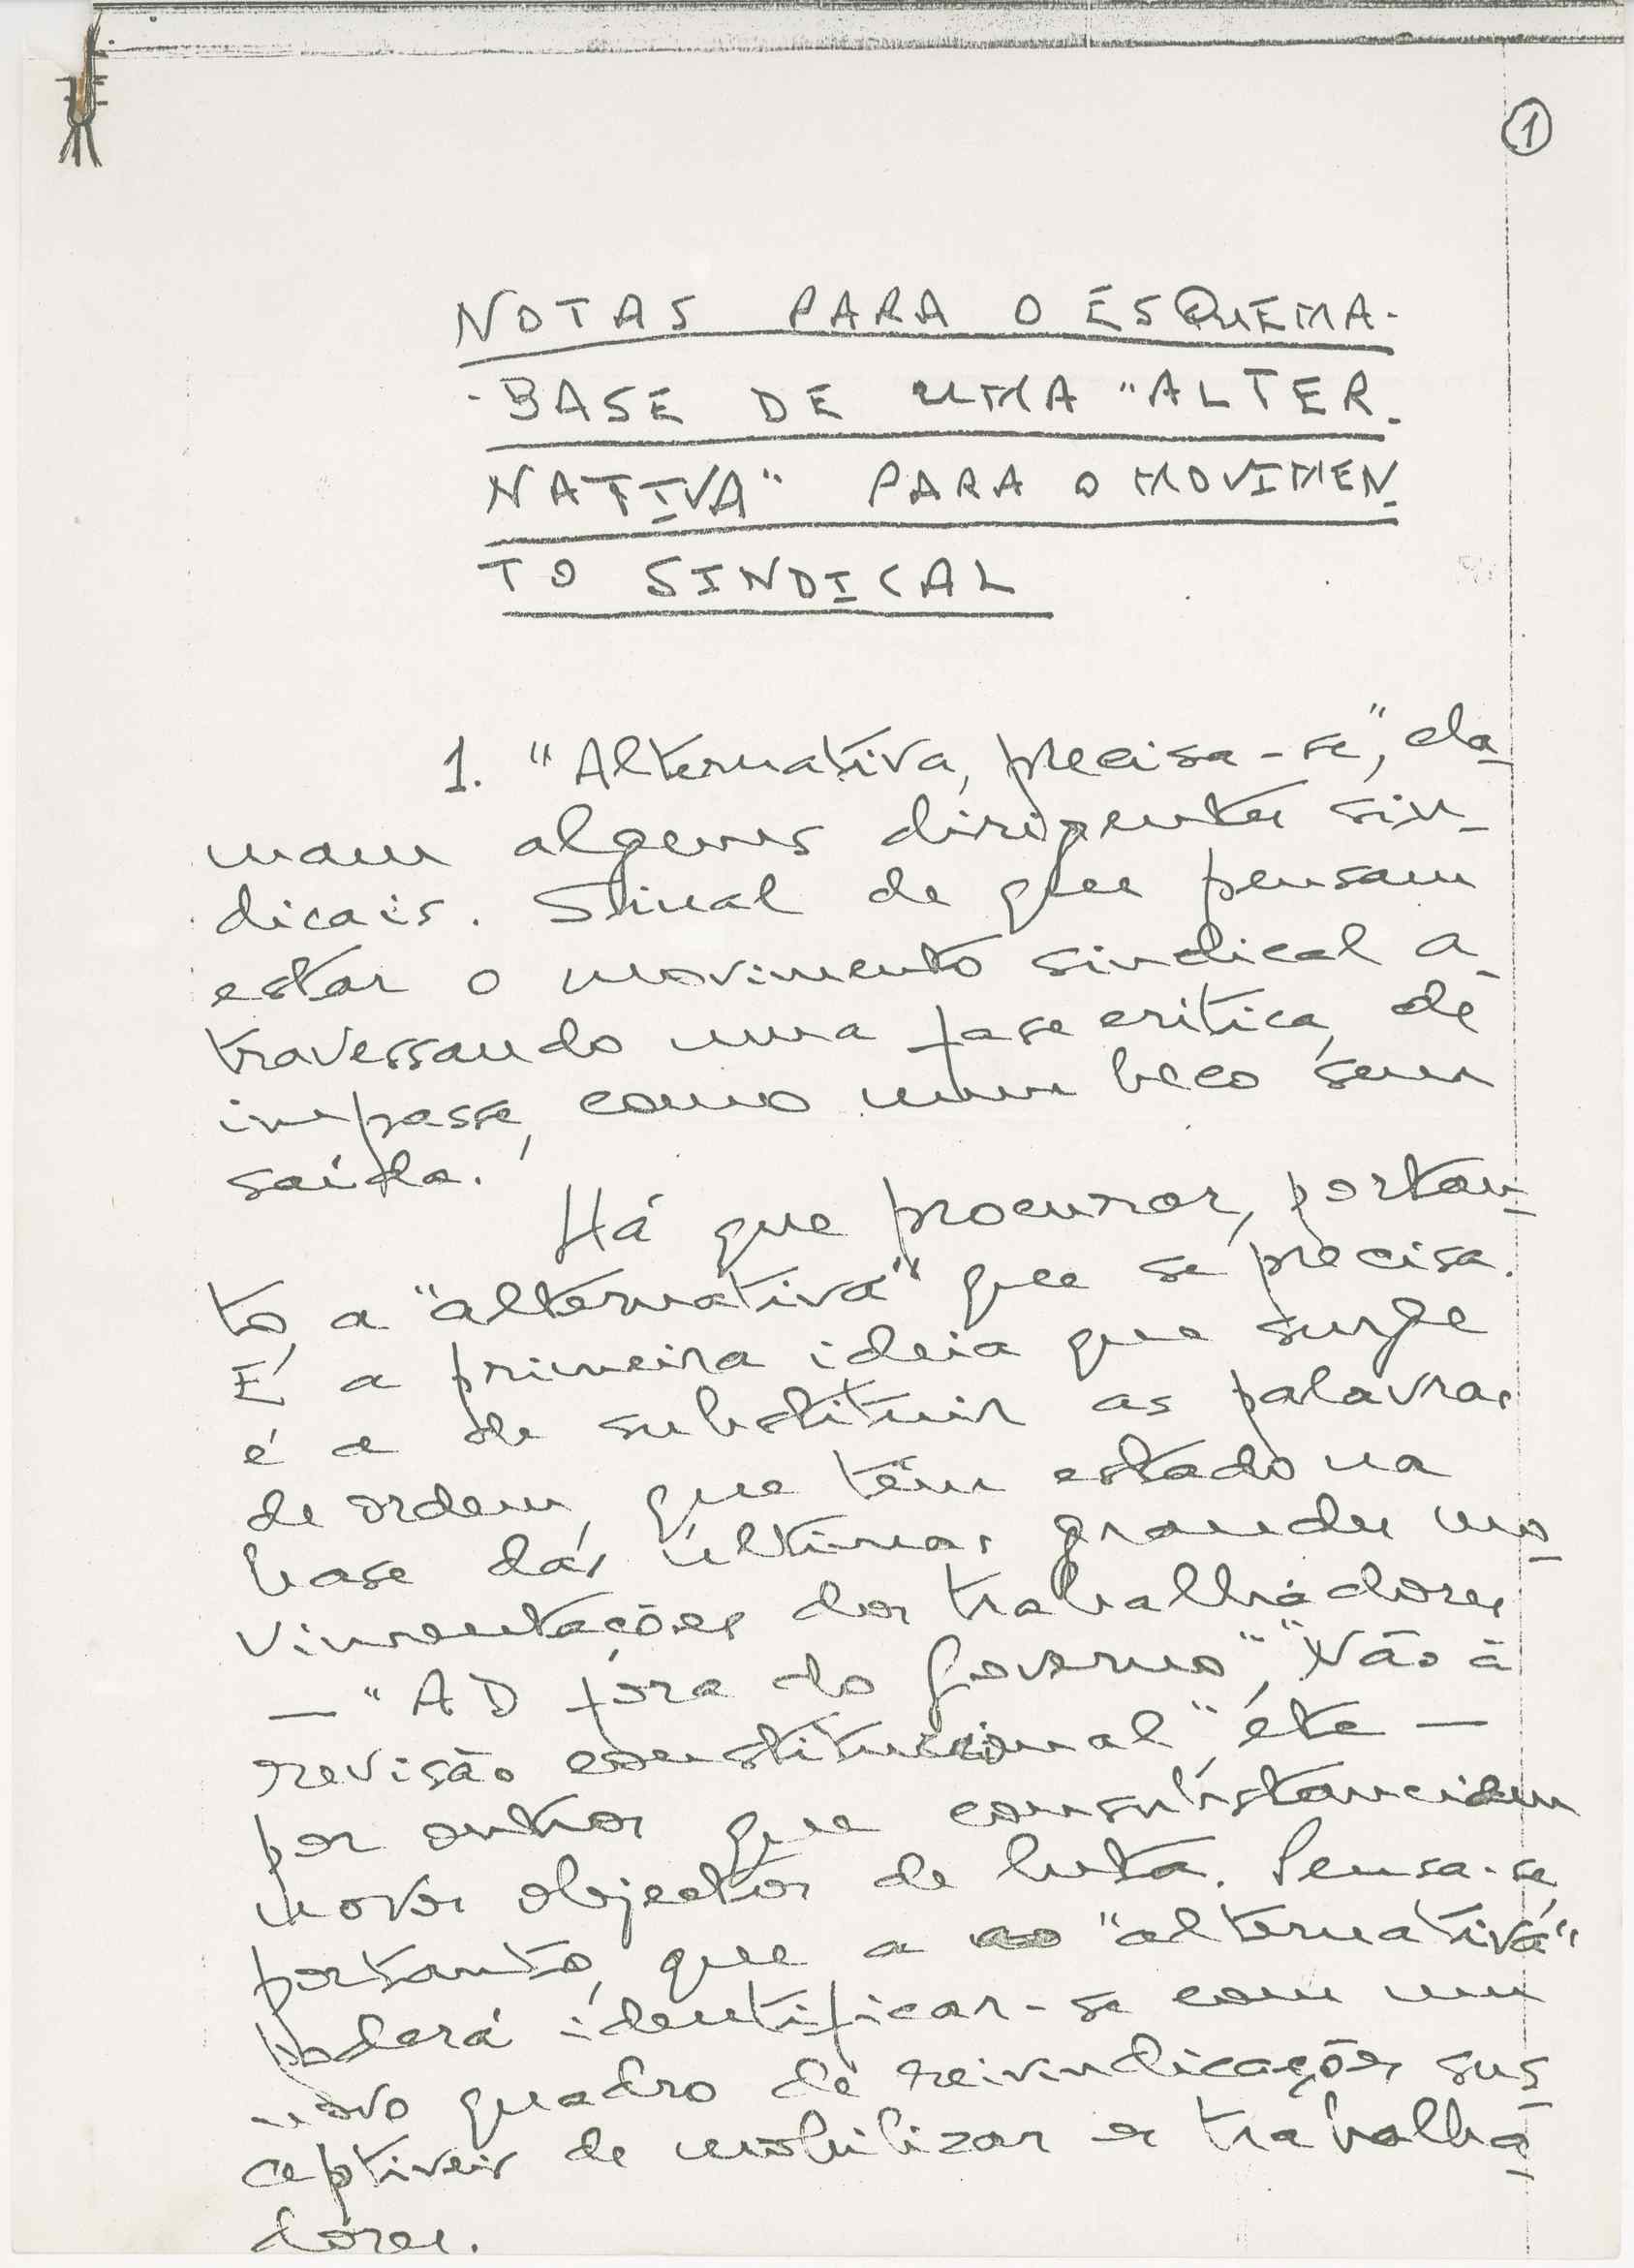 1
NOTAS PARA O ESQUEMA-
-BASE DE UMA "ALTER-
NATIVA" PARA O MOVIMEN-
TO SINDICAL
1. "Alternativa, precisa-se", cla-
mam alguns dirigentes sin-
dicais. Sinal de que pensam
estar o movimento sindical a-
travessando uma fase crítica, de
impasse, como num beco sem
saída.
Há que procurar, portan-
to, a "alternativa" que se precisa.
E a primeira ideia que surge
é a de substituir as palavras
de ordem, que têm estado na
base das últimas grandes mo-
vimentações dos trabalhadores
— "AD fora do Governo", "Não à
revisão constitucional" etc —
por outras que consubstanciem
novos objectos de luta. Pensa-se,
portanto, que a "alternativa"
poderá identificar-se com um
novo quadro de reivindicações sus-
ceptíveis de mobilizar os trabalha-
dores.